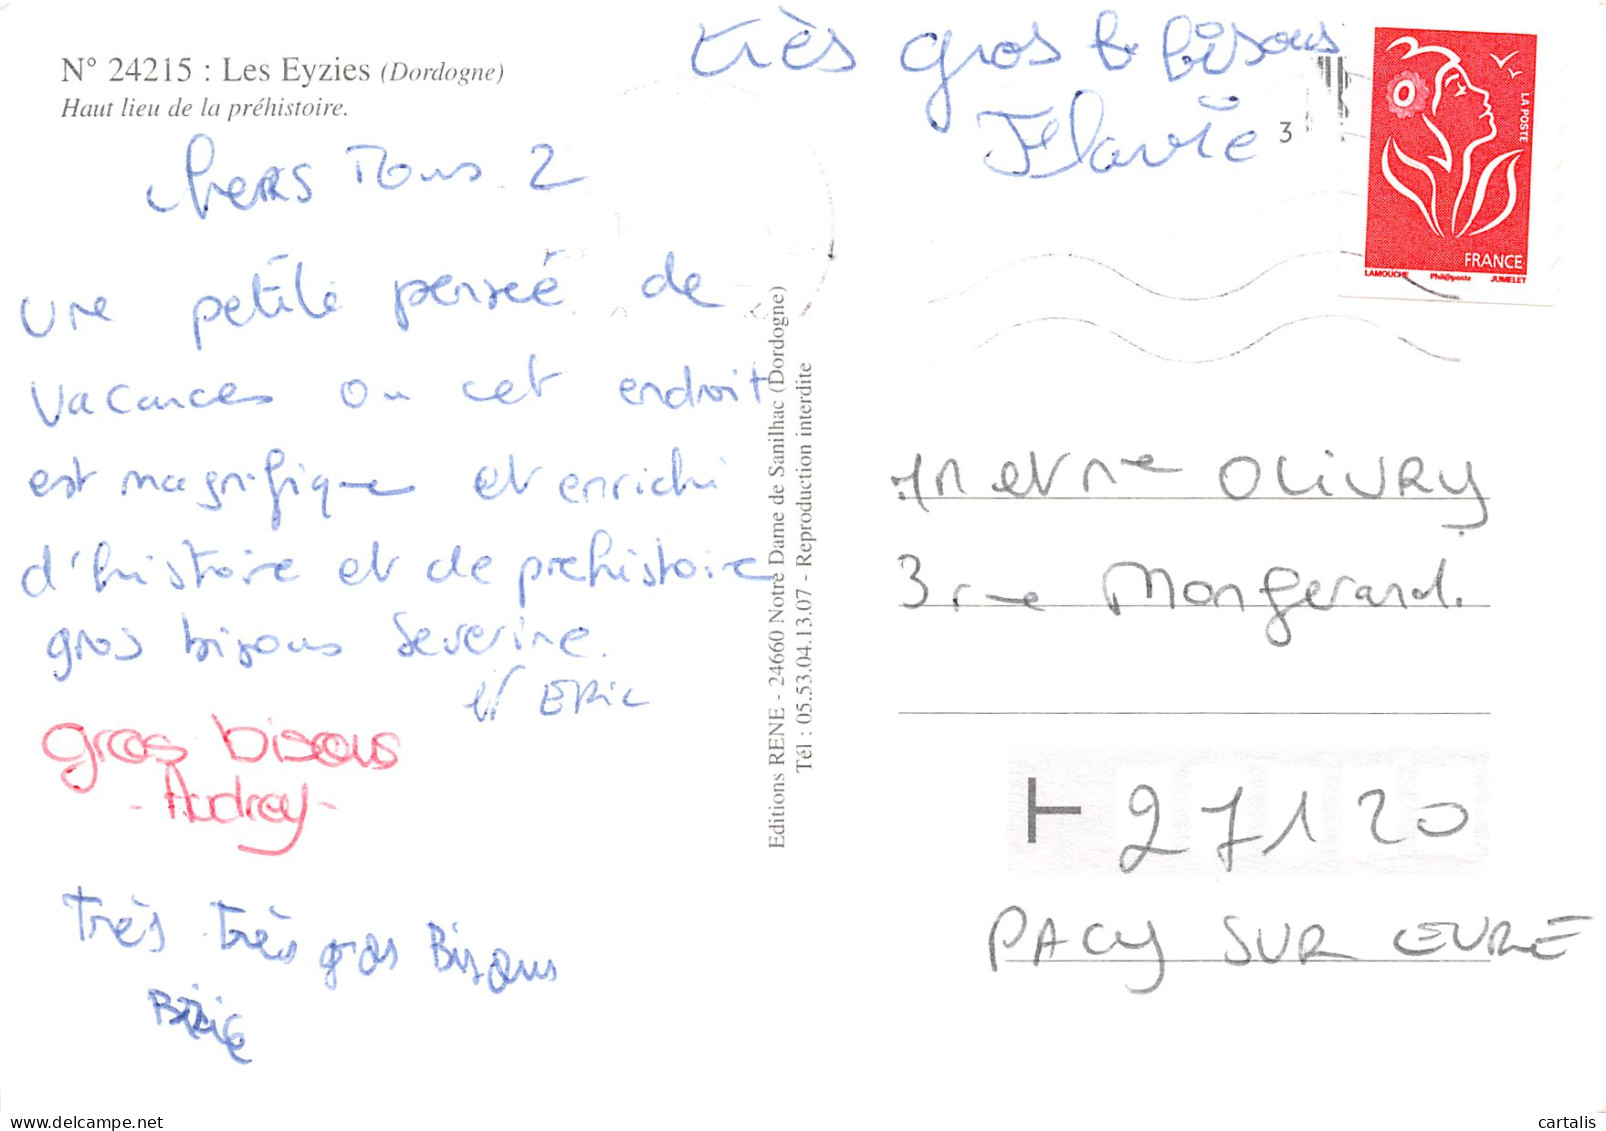 N° 24215 : Les Eyzies (Dordogne)
Haut lieu de la préhistoire.
très gros b bisous
Flavie
3
LA POSTE
FRANCE
LAMOUCHE Phil@poste JUMELET
chers Tous 2
une petite pensée de
vacances ou cet endroit
est magnifique et enrichi
d'histoire et de prehistoire
gros bisous Severine.
et ERIC
gros bisous
- Audrey -
Très Très gros Bisous
Editions RENE - 24660 Notre Dame de Sanilhac (Dordogne)
Tél : 05.53.04.13.07 - Reproduction interdite
Mr et Me OLIVRY
3 rue Mongerard.
27120
PACY SUR EURE
cartalis
delcampe.net